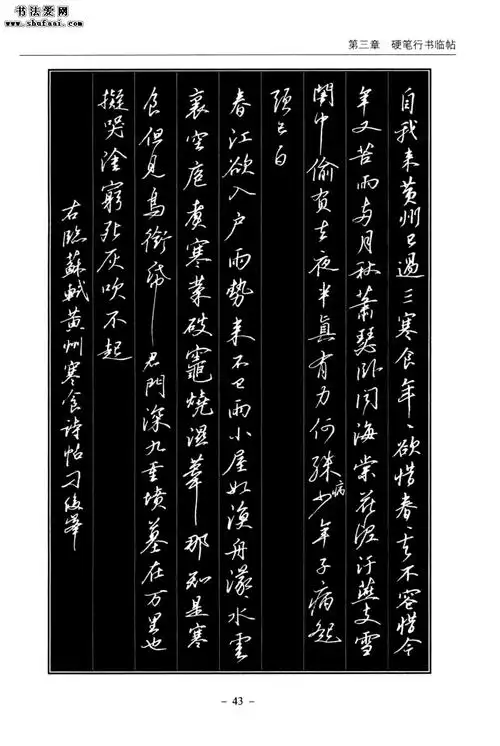 书法爱网
www.shufaai.com
第三章 硬笔行书临帖
自我来黄州已過三寒食年、欲惜春、去不容惜今
年又苦雨两月秋萧瑟卧闻海棠花泥汙燕支雪
闇中偷負去夜半真有力何殊少年子病起
頭已白
春江欲入户雨勢来不已雨小屋如漁舟濛水雲
裏空庖煮寒菜破竈燒濕葦那知是寒
食但見烏銜帋君門深九重墳墓在万里也
擬哭塗窮死灰吹不起
右臨蘇軾黄州寒食诗帖刁俊峯
- 43 -